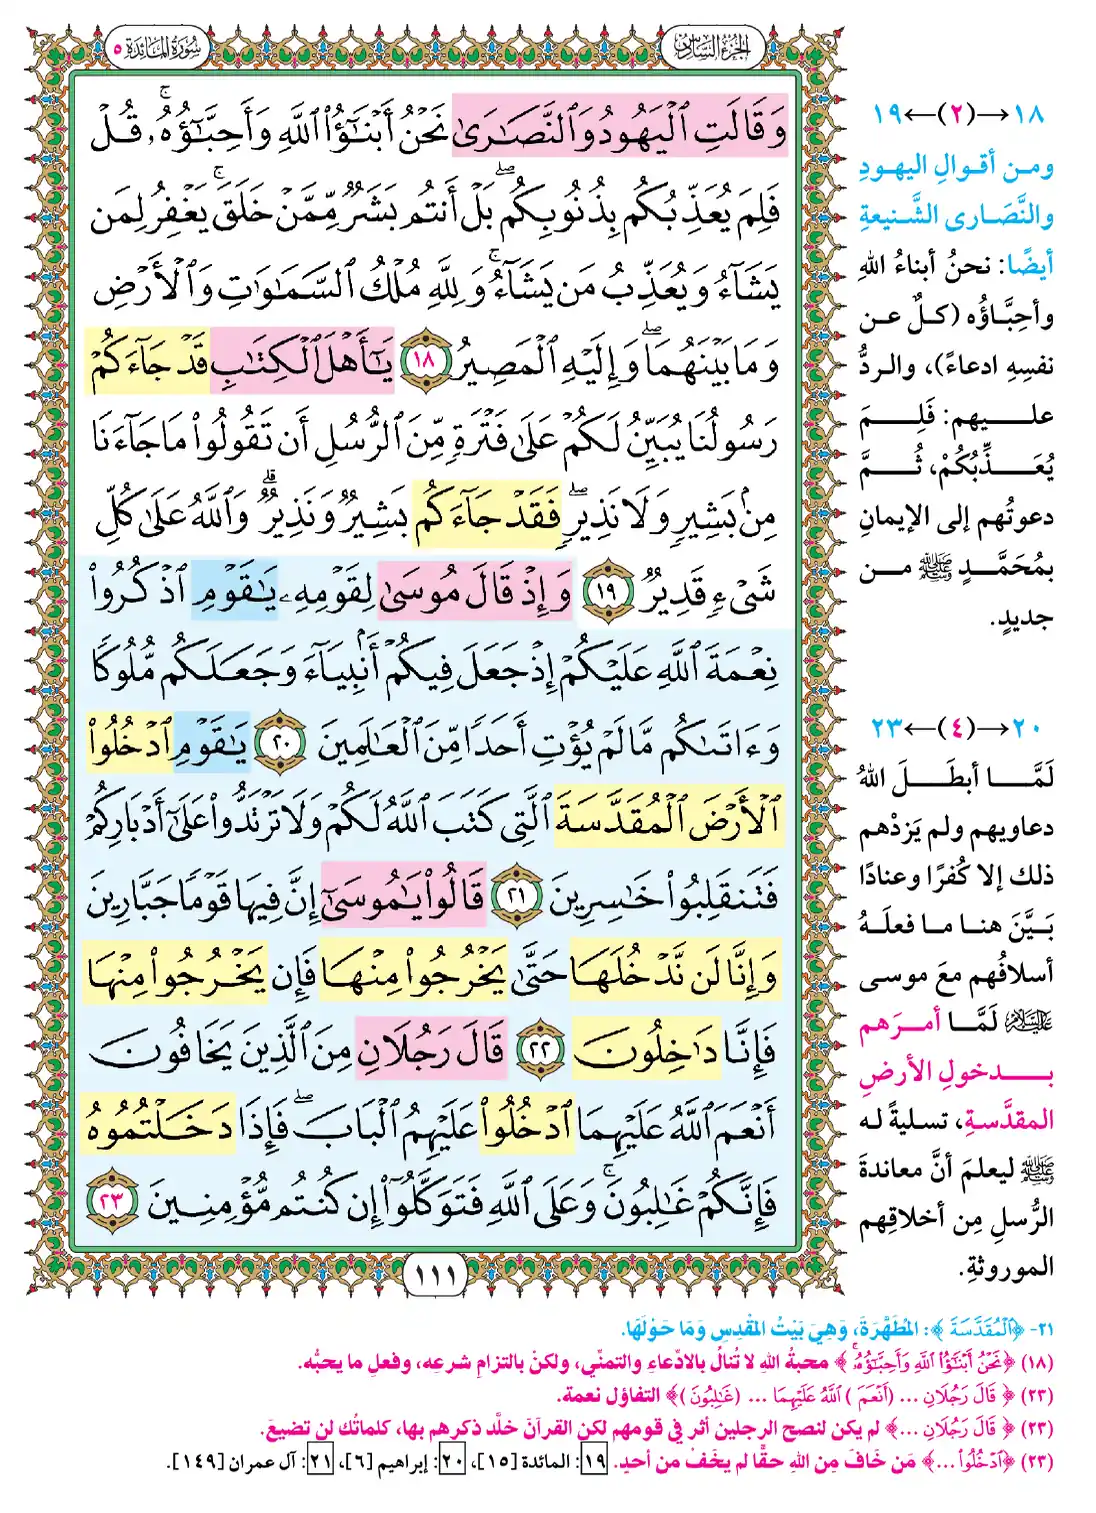 الجزء السادس
سورة المائدة ٥
وَقَالَتِ ٱلْيَهُودُ وَٱلنَّصَٰرَىٰ نَحْنُ أَبْنَٰٓؤُا۟ ٱللَّهِ وَأَحِبَّٰٓؤُهُۥ ۚ قُلْ
فَلِمَ يُعَذِّبُكُم بِذُنُوبِكُم ۖ بَلْ أَنتُم بَشَرٌ مِّمَّنْ خَلَقَ ۚ يَغْفِرُ لِمَن
يَشَآءُ وَيُعَذِّبُ مَن يَشَآءُ ۚ وَلِلَّهِ مُلْكُ ٱلسَّمَٰوَٰتِ وَٱلْأَرْضِ
وَمَا بَيْنَهُمَا ۖ وَإِلَيْهِ ٱلْمَصِيرُ ١٨ يَٰٓأَهْلَ ٱلْكِتَٰبِ قَدْ جَآءَكُمْ
رَسُولُنَا يُبَيِّنُ لَكُمْ عَلَىٰ فَتْرَةٍ مِّنَ ٱلرُّسُلِ أَن تَقُولُوا۟ مَا جَآءَنَا
مِنۢ بَشِيرٍ وَلَا نَذِيرٍ ۖ فَقَدْ جَآءَكُم بَشِيرٌ وَنَذِيرٌ ۗ وَٱللَّهُ عَلَىٰ كُلِّ
شَىْءٍ قَدِيرٌ ١٩ وَإِذْ قَالَ مُوسَىٰ لِقَوْمِهِۦ يَٰقَوْمِ ٱذْكُرُوا۟
نِعْمَةَ ٱللَّهِ عَلَيْكُمْ إِذْ جَعَلَ فِيكُمْ أَنۢبِيَآءَ وَجَعَلَكُم مُّلُوكًا
وَءَاتَىٰكُم مَّا لَمْ يُؤْتِ أَحَدًا مِّنَ ٱلْعَٰلَمِينَ ٢٠ يَٰقَوْمِ ٱدْخُلُوا۟
ٱلْأَرْضَ ٱلْمُقَدَّسَةَ ٱلَّتِى كَتَبَ ٱللَّهُ لَكُمْ وَلَا تَرْتَدُّوا۟ عَلَىٰٓ أَدْبَارِكُمْ
فَتَنقَلِبُوا۟ خَٰسِرِينَ ٢١ قَالُوا۟ يَٰمُوسَىٰٓ إِنَّ فِيهَا قَوْمًا جَبَّارِينَ
وَإِنَّا لَن نَّدْخُلَهَا حَتَّىٰ يَخْرُجُوا۟ مِنْهَا فَإِن يَخْرُجُوا۟ مِنْهَا
فَإِنَّا دَٰخِلُونَ ٢٢ قَالَ رَجُلَانِ مِنَ ٱلَّذِينَ يَخَافُونَ
أَنْعَمَ ٱللَّهُ عَلَيْهِمَا ٱدْخُلُوا۟ عَلَيْهِمُ ٱلْبَابَ ۖ فَإِذَا دَخَلْتُمُوهُ
فَإِنَّكُمْ غَٰلِبُونَ ۚ وَعَلَى ٱللَّهِ فَتَوَكَّلُوٓا۟ إِن كُنتُم مُّؤْمِنِينَ ٢٣
١١١
١٨→(٢)←١٩
ومن أقوالِ اليهودِ
والنَّصَارى الشَّنيعةِ
أيضًا: نحنُ أبناءُ اللهِ
وأحِبَّاؤُه (كلٌ عن
نفسِهِ ادعاءً)، والردُّ
عليهم: فَلِمَ
يُعَذِّبُكُمْ، ثُمَّ
دعوتُهم إلى الإيمانِ
بمُحَمَّدٍ ﷺ من
جديدٍ.
٢٠→(٤)←٢٣
لَمَّا أبطلَ اللهُ
دعاويهم ولم يَزدْهم
ذلك إلا كُفرًا وعنادًا
بَيَّنَ هنا ما فعلَهُ
أسلافُهم معَ موسى
عليه السلام لَمَّا أمرَهم
بدخولِ الأرضِ
المقدَّسةِ، تسليةً له
ﷺ ليعلمَ أنَّ معاندةَ
الرُّسلِ مِن أخلاقِهم
الموروثةِ.
٢١- ﴿ٱلْمُقَدَّسَةَ﴾: المُطَهَّرَةَ، وَهِيَ بَيْتُ المَقْدِسِ وَمَا حَوْلَهَا.
(١٨) ﴿نَحْنُ أَبْنَٰٓؤُا۟ ٱللَّهِ وَأَحِبَّٰٓؤُهُۥ ۚ﴾ محبةُ اللهِ لا تُنالُ بالادِّعاءِ والتمنِّي، ولكنْ بالتزامِ شرعِه، وفعلِ ما يحبُّه.
(٢٣) ﴿قَالَ رَجُلَانِ ... (أَنْعَمَ) ٱللَّهُ عَلَيْهِمَا ... (غَٰلِبُونَ)﴾ التفاؤل نعمة.
(٢٣) ﴿قَالَ رَجُلَانِ ...﴾ لم يكن لنصح الرجلين أثر في قومهم لكن القرآنَ خلَّد ذكرهم بها، كلماتُك لن تضيعَ.
(٢٣) ﴿ٱدْخُلُوا۟ ...﴾ مَن خَافَ مِن اللهِ حقًّا لم يخَفْ من أحدٍ. ١٩: المائدة [١٥]، ٢٠: إبراهيم [٦]، ٢١: آل عمران [١٤٩].